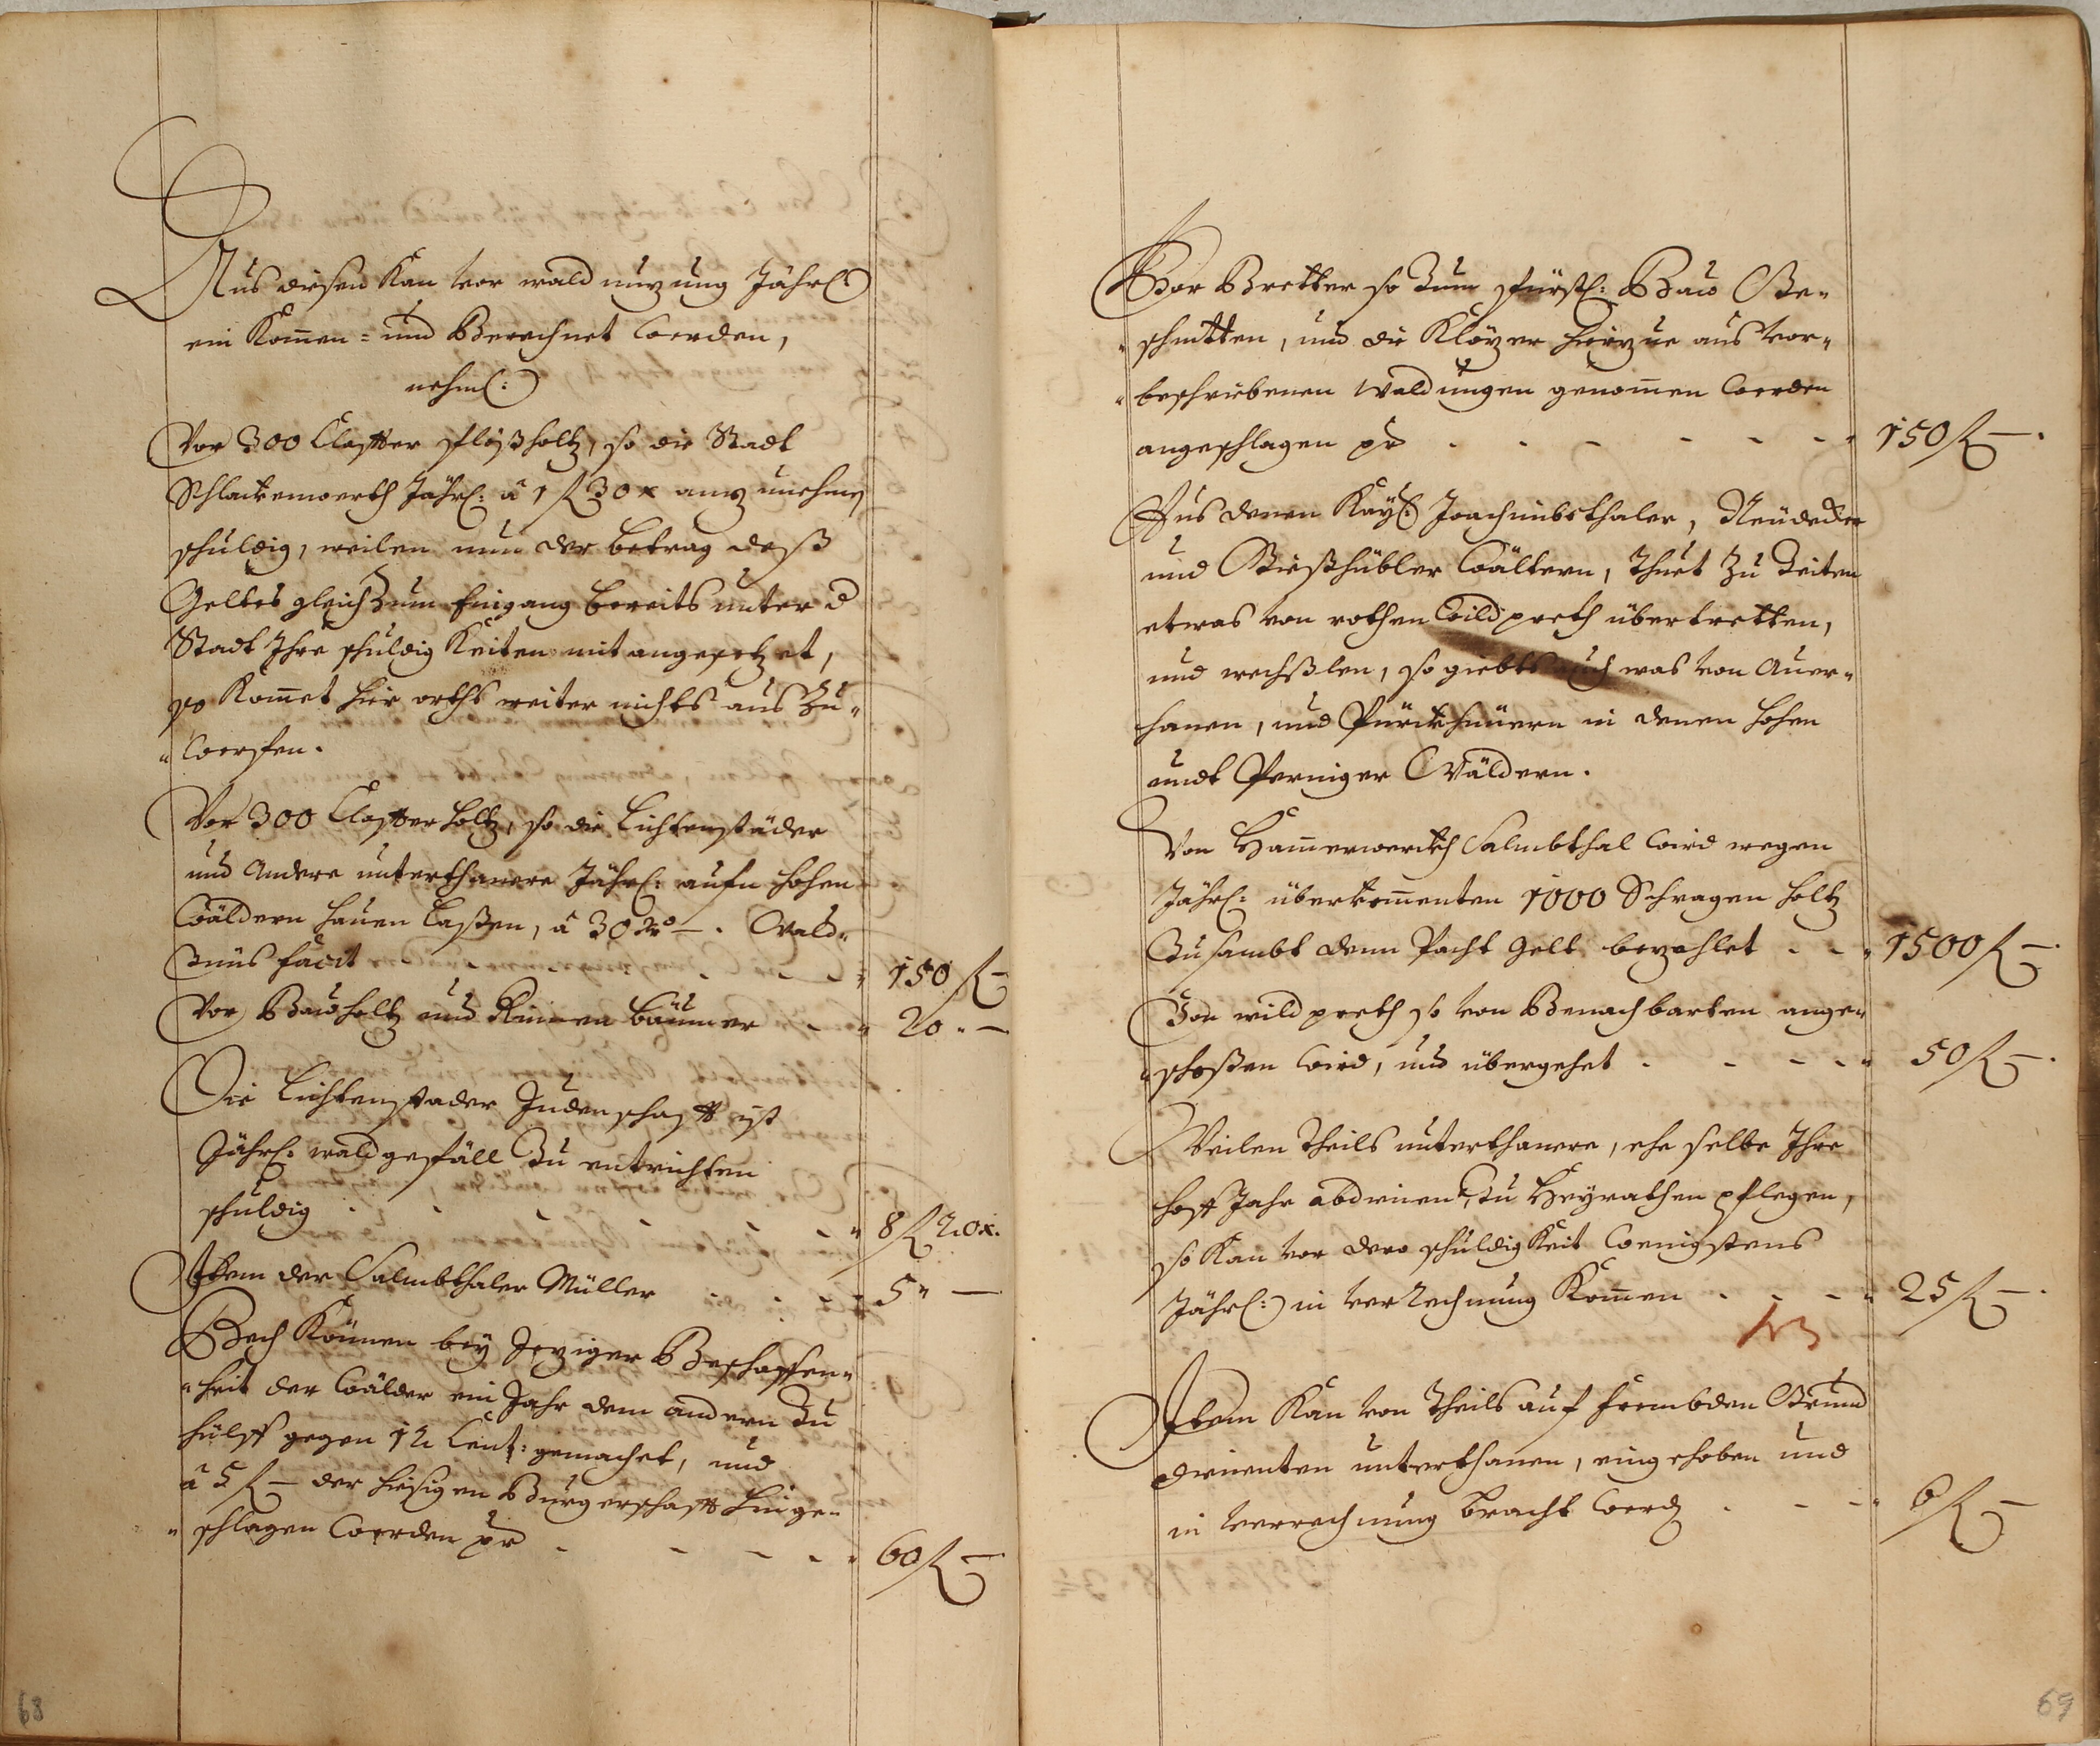 Aus diesen Kan vor wald nuzung Jährl:
ein Kom̄en= und Berechnet werden,
nehml:
Vor 300 Clafter flößholtz, so die Stadt
Schlackenwerth Jährl: â 1 f 30 x anzunehmen
schuldig, weilen nun der betrag deß
Geltes gleich Zum Eingang bereits unter d
Stadt Ihre schuldigKeiten mit angesetzet,
so Kom̄et hier orths weiter nichts aus Zu„
„werfen.
Vor 300 Clafter holtz, so die Lichtenstäder
und Andere unterthanere Jährl: aufn hohen
Wäldern hauen laßen, â 30 xr —. Wald„
Zünß facit - - - - - - „ 150 f —
Vor Bauholtz und Rinnen bäumer - „ 20 „ —
Die Lichtenstader Judenschafft ist
Jährl: waldgefäll Zu entrichten
schuldig - - - - - - „ 8 f 20 x.
Item der Salmbthaler Müller - - - „ 5 „ —
Bech Können bey Jeziger Beschaffen„
„heit der Wälder ein Jahr dem andern Zu
hülff gegen 12 Cent: gemachet, und
â 5 f — der hiesigen Burgerschafft hinge„
„schlagen werden pr - - - - „ 60 f —
68
Vor Bretter so Zum fürstl: Bau Ge„
„schnitten, und die Klözer hierzue aus vor„
„beschriebenen Waldungen genom̄en werden
angeschlagen pr - - - - - - „ 150 f —.
Aus denen Kayl: Joachimbsthaler, Neüdecker
und Gießhübler Wältern, Thuet Zu Zeiten
etwas von rothen Wildpreth übertretten,
und wechßlen, so giebts auch was von Auer„
hanen, und Pürckhünern in denen hohen
undt Perniger Wäldern.
Von Ham̄erwerckh Salmbthal wird wegen
Jährl: überkom̄enten 1000 Schragen holtz
Zusambt denn Pacht Gelt bezahlet - - „ 1500 f —.
Von wildpreth so von Benachbarten ange„
„schoßen wird, und übergehet - - - - „ 50 f —.
Weilen Theils unterthanere, ehe selbe Ihre
hoff Jahr abdienen, Zu Heyrathen pflegen,
so Kan vor dero schuldigKeit wenigstens
Jährl: in verrechnung Kom̄en - - - „ 25 f —.
Item Kan von Theils auf frembden Grund
dienenten unterthanen, eingehoben und
in verrechnung bracht werden - - - „ 6 f —
69